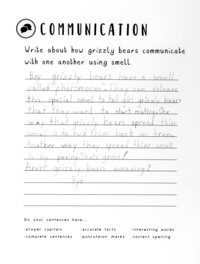 COMMUNICATION
Write about how grizzly bears communicate
with one another using smell.
Boy grizzly bears have a smell
called pheromones. They can release
this special smell to tell girl grizzly bears
that they want to start mating. One
way that grizzly bears spread thier
smell is to rub thier back on trees.
Another way they spread thier smell
is by peeing thats gross!
Arent grizzly bears amazing?
Bye
Do your sentences have...
·proper capitals ·accurate facts ·interesting words
·complete sentences ·punctuation marks ·correct spelling